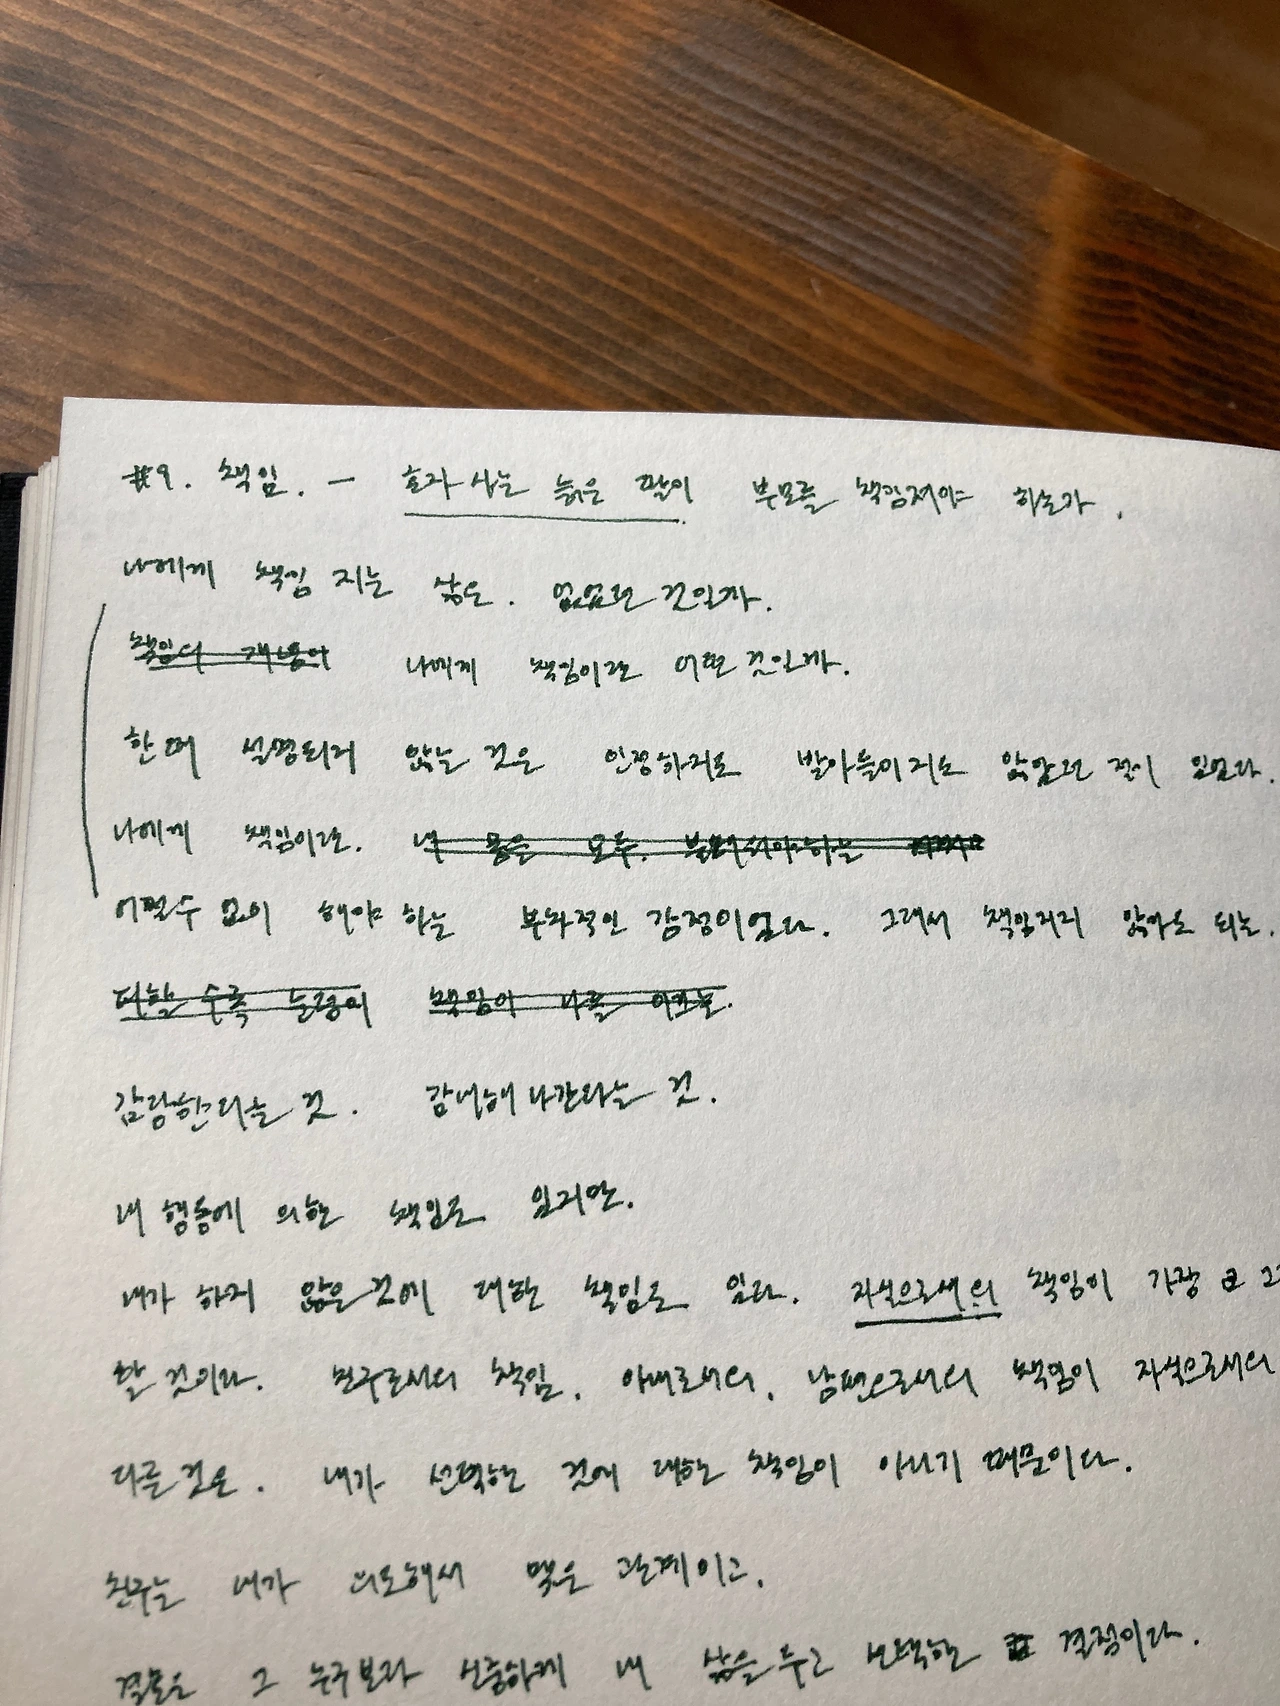 #9. 책임. - 혼자 사는 늙은 딸이 부모를 책임져야 하는가.
나에게 책임 지는 삶은. 없었던 것일까.
책임의 개념이 나에게 책임이란 어떤 것일까.
한때 설명되지 않는 것은 인정하지도 받아들이지도 않았던 적이 있었다.
나에게 책임이란. 내 몫은 모두.
어쩔수 없이 해야 하는 부차적인 감정이었다. 그래서 책임지지 않아도 되는.
더할 수록 책임이 나를
감당한다는 것. 감내해 나간다는 것.
내 행동에 의한 책임도 있지만.
내가 하지 않은 것에 대한 책임도 있다. 자식으로써의 책임이 가장
할 것이다. 친구로서의 책임. 아빠로서의. 남편으로서의 책임이 자식으로서의
다른 것은. 내가 선택한 것에 대한 책임이 아니기 때문이다.
친구는 내가 의도해서 맺은 관계이고.
결혼은 그 누구보다 신중하게 내 삶을 두고 선택한 결정이다.